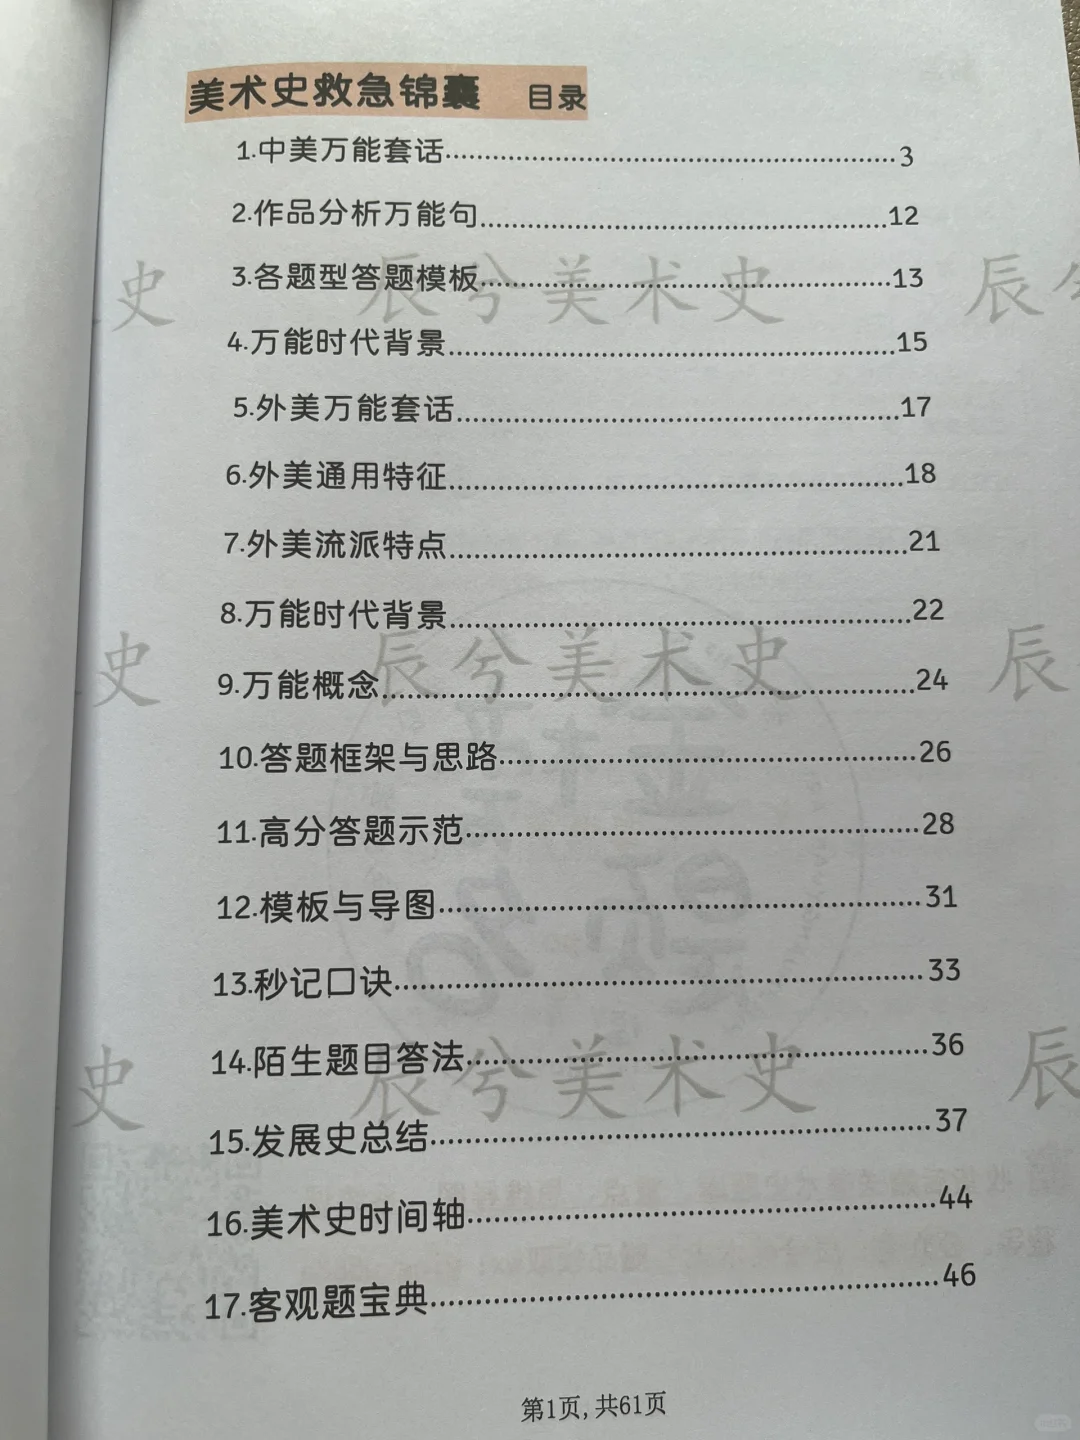 美术史救急锦囊 目录
1.中美万能套话……3
2.作品分析万能句……12
3.各题型答题模板……13
辰兮美术史
4.万能时代背景……15
5.外美万能套话……17
6.外美通用特征……18
7.外美流派特点……21
8.万能时代背景……22
辰兮美术史
9.万能概念……24
10.答题框架与思路……26
11.高分答题示范……28
12.模板与导图……31
13.秒记口诀……33
14.陌生题目答法……36
辰兮美术史
15.发展史总结……37
16.美术史时间轴……44
17.客观题宝典……46
第1页,共61页